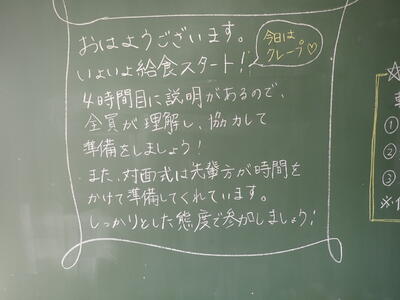 おはようございます。
いよいよ給食スタート!
今日は。
クレープ♡
4時間目に説明があるので、
全員が理解し、協力して
準備をしましょう!
また、対面式は先輩方が時間を
かけて準備してくれています。
しっかりとした態度で参加しましょう!
①
②
③